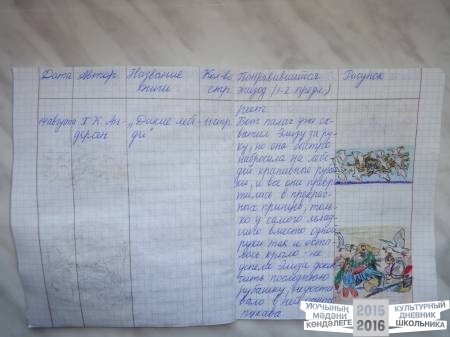 Дата Автор Название книги Кол-во стр. Понравившийся эпизод (1-2 предл) Рисунок
14 августа Х. К. Андерсен „Дикие лебеди" стр.
Вот палач уже схватил Элизу за руку, но она быстро набросила на лебедей крапивные рубахи, и все они превратились в прекрасных принцев, только у самого младшего вместо одной руки так и осталось крыло: не успела Элиза доделать последнюю рубашку, недоставало в ней рукава.
УКУЧЫНЫҢ
МӘДӘНИ
КӨНДӘЛЕГЕ
2015
2016
КУЛЬТУРНЫЙ
ДНЕВНИК
ШКОЛЬНИКА